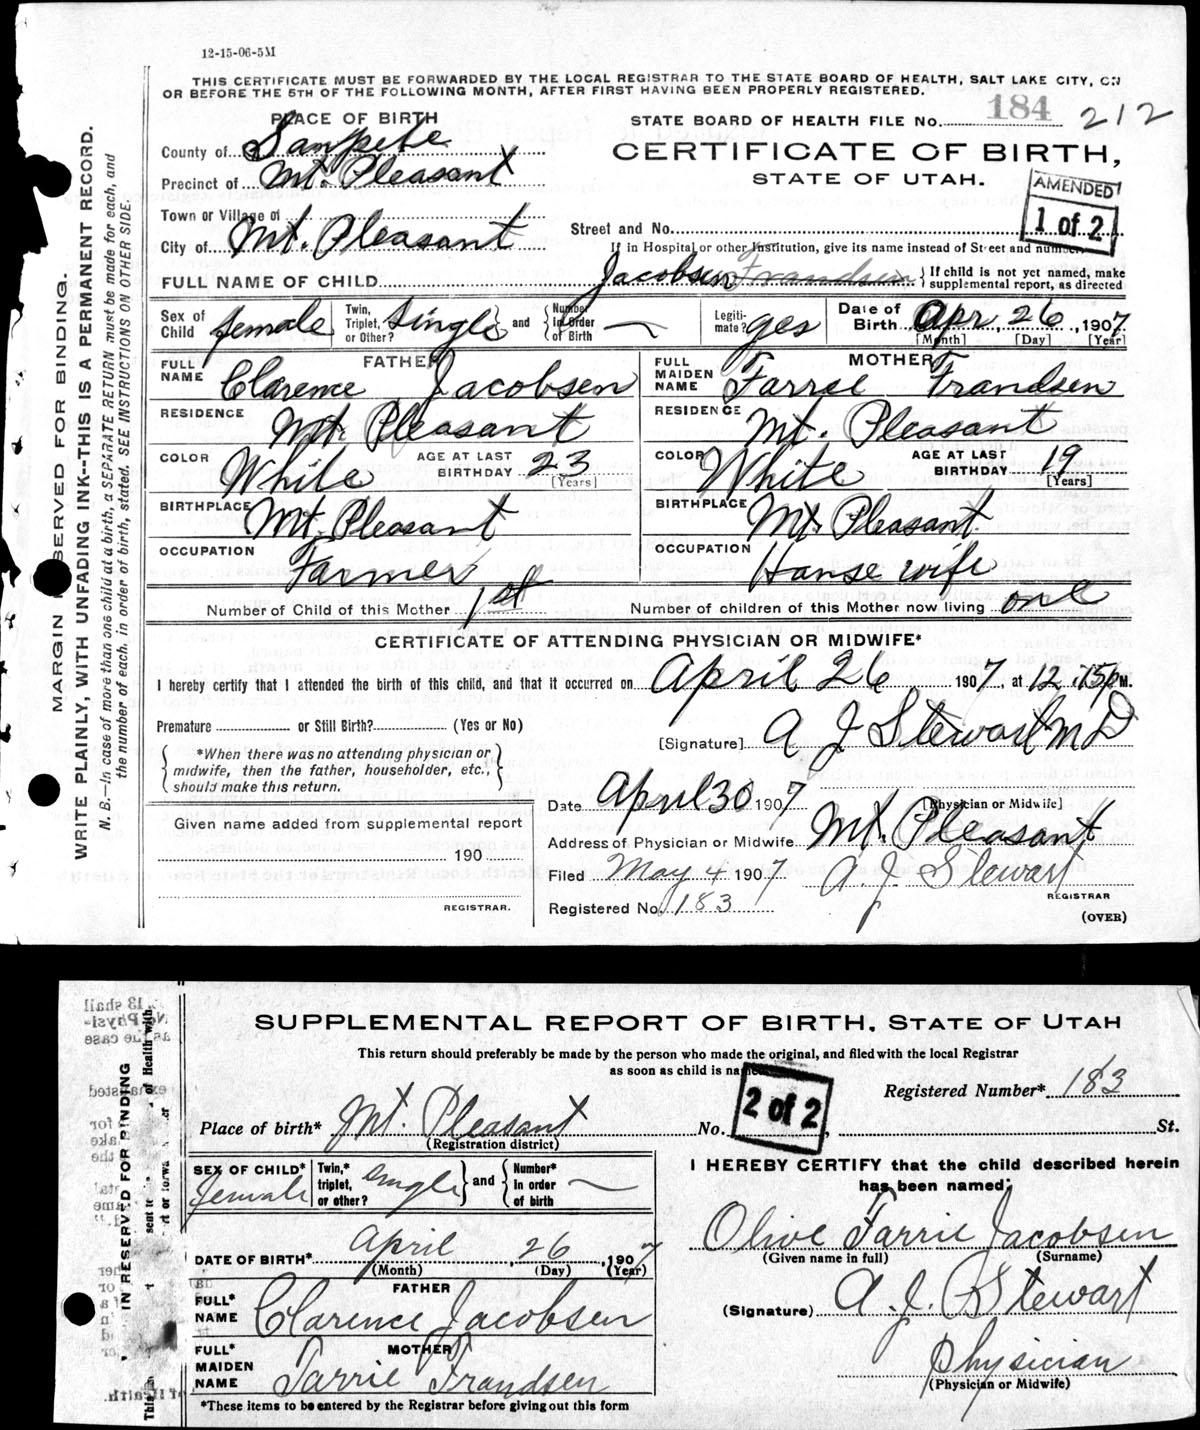 12-15-06-5M
THIS CERTIFICATE MUST BE FORWARDED BY THE LOCAL REGISTRAR TO THE STATE BOARD OF HEALTH, SALT LAKE CITY, ON
OR BEFORE THE 5TH OF THE FOLLOWING MONTH, AFTER FIRST HAVING BEEN PROPERLY REGISTERED.
PLACE OF BIRTH
County of Sanpete
Precinct of Mt. Pleasant
Town or Village of
City of Mt. Pleasant
STATE BOARD OF HEALTH FILE No. 184 212
CERTIFICATE OF BIRTH,
STATE OF UTAH.
AMENDED
1 of 2
Street and No.
If in Hospital or other Institution, give its name instead of Street and number.
FULL NAME OF CHILD Jacobsen Frandsen { If child is not yet named, make
supplemental report, as directed
Sex of Child female Twin, Triplet, or Other? Single and Number in Order of Birth Legiti-mate? yes Date of Birth Apr, 26, 1907
[Month] [Day] [Year]
FATHER
FULL NAME Clarence Jacobsen
RESIDENCE Mt. Pleasant
COLOR White AGE AT LAST BIRTHDAY 23
[Years]
BIRTHPLACE Mt. Pleasant
OCCUPATION Farmer
MOTHER
FULL MAIDEN NAME Farrie Frandsen
RESIDENCE Mt. Pleasant
COLOR White AGE AT LAST BIRTHDAY 19
[Years]
BIRTHPLACE Mt. Pleasant
OCCUPATION House wife
Number of Child of this Mother 1st Number of children of this Mother now living one
CERTIFICATE OF ATTENDING PHYSICIAN OR MIDWIFE*
I hereby certify that I attended the birth of this child, and that it occurred on April 26 1907, at 12:15 P M.
Premature or Still Birth? (Yes or No)
[Signature] A J Stewart MD
*When there was no attending physician or
midwife, then the father, householder, etc.,
should make this return.
Date April 30 1907 [Physician or Midwife]
Given name added from supplemental report
190
REGISTRAR.
Address of Physician or Midwife Mt. Pleasant
Filed May 4 1907 A. J. Stewart
REGISTRAR
Registered No. 183
(OVER)
MARGIN RESERVED FOR BINDING.
WRITE PLAINLY, WITH UNFADING INK--THIS IS A PERMANENT RECORD.
N. B.—In case of more than one child at a birth, a SEPARATE RETURN must be made for each, and
the number of each, in order of birth, stated. SEE INSTRUCTIONS ON OTHER SIDE.
SUPPLEMENTAL REPORT OF BIRTH, STATE OF UTAH
This return should preferably be made by the person who made the original, and filed with the local Registrar
as soon as child is named.
2 of 2
Registered Number* 183
Place of birth* Mt. Pleasant No. , St.
(Registration district)
SEX OF CHILD* female Twin,* triplet, or other? single and Number* in order of birth
DATE OF BIRTH* April, 26, 1907
(Month) (Day) (Year)
FATHER
FULL* NAME Clarence Jacobsen
MOTHER
FULL* MAIDEN NAME Farrie Frandsen
*These items to be entered by the Registrar before giving out this form
I HEREBY CERTIFY that the child described herein
has been named:
Olive Farrie Jacobsen
(Given name in full) (Surname)
(Signature) A. J. Stewart
Physician
(Physician or Midwife)
IN RESERVED FOR BINDING